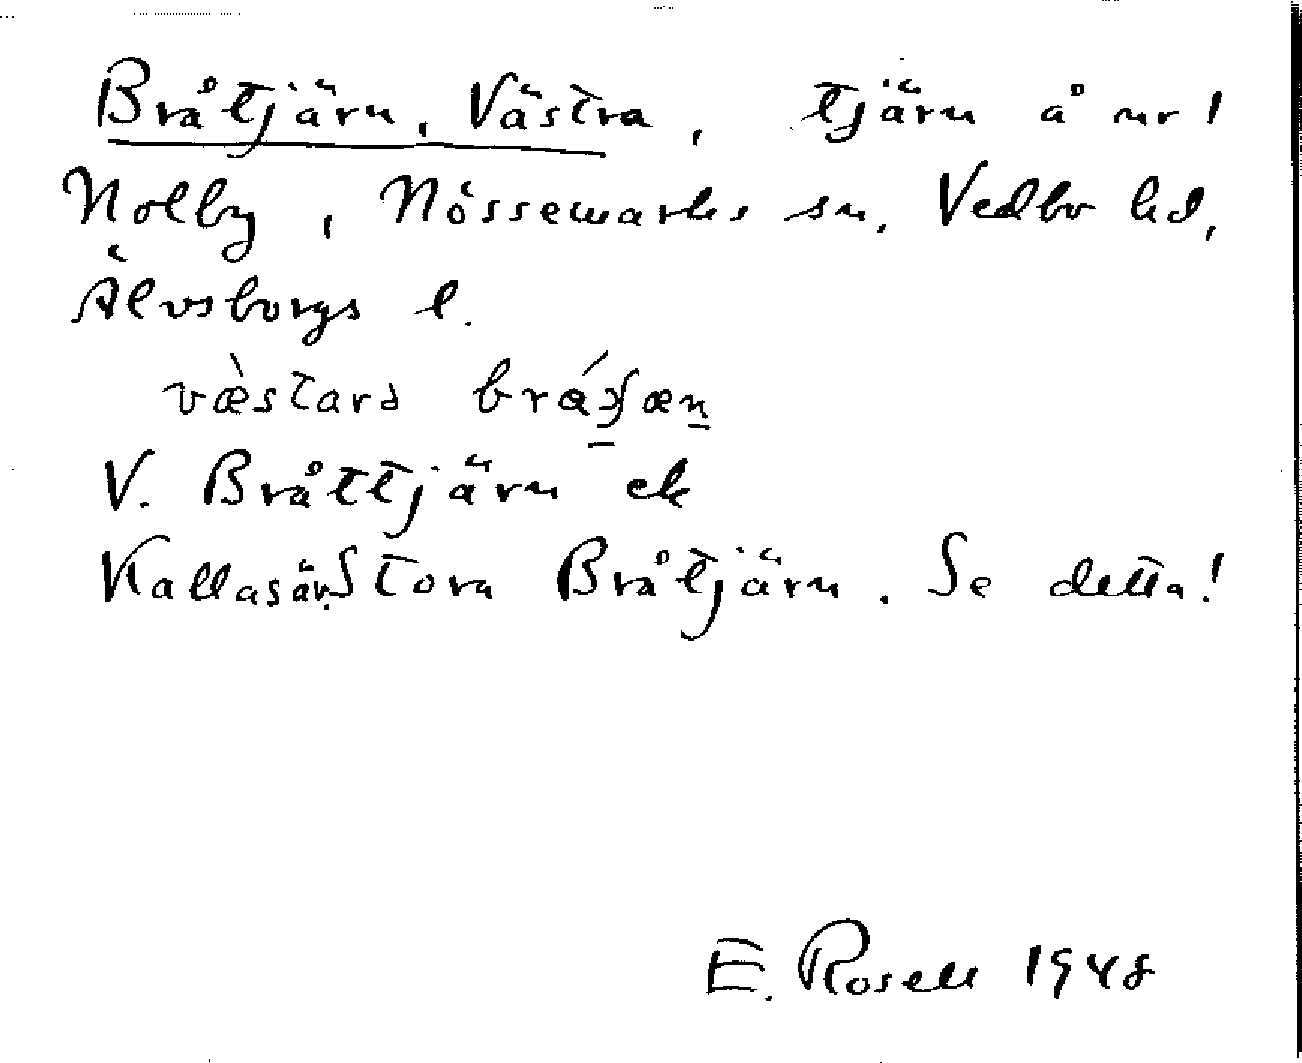 Bråtjärn, Västra, tjärn å nr 1
Nolby, Nössemarks sn, Vedbo hd,
Älvsborgs l.
væ̀stara
V. Bråttjärn ek
Kallas äv. Stora Bråtjärn. Se detta!
E. Rosell 1948